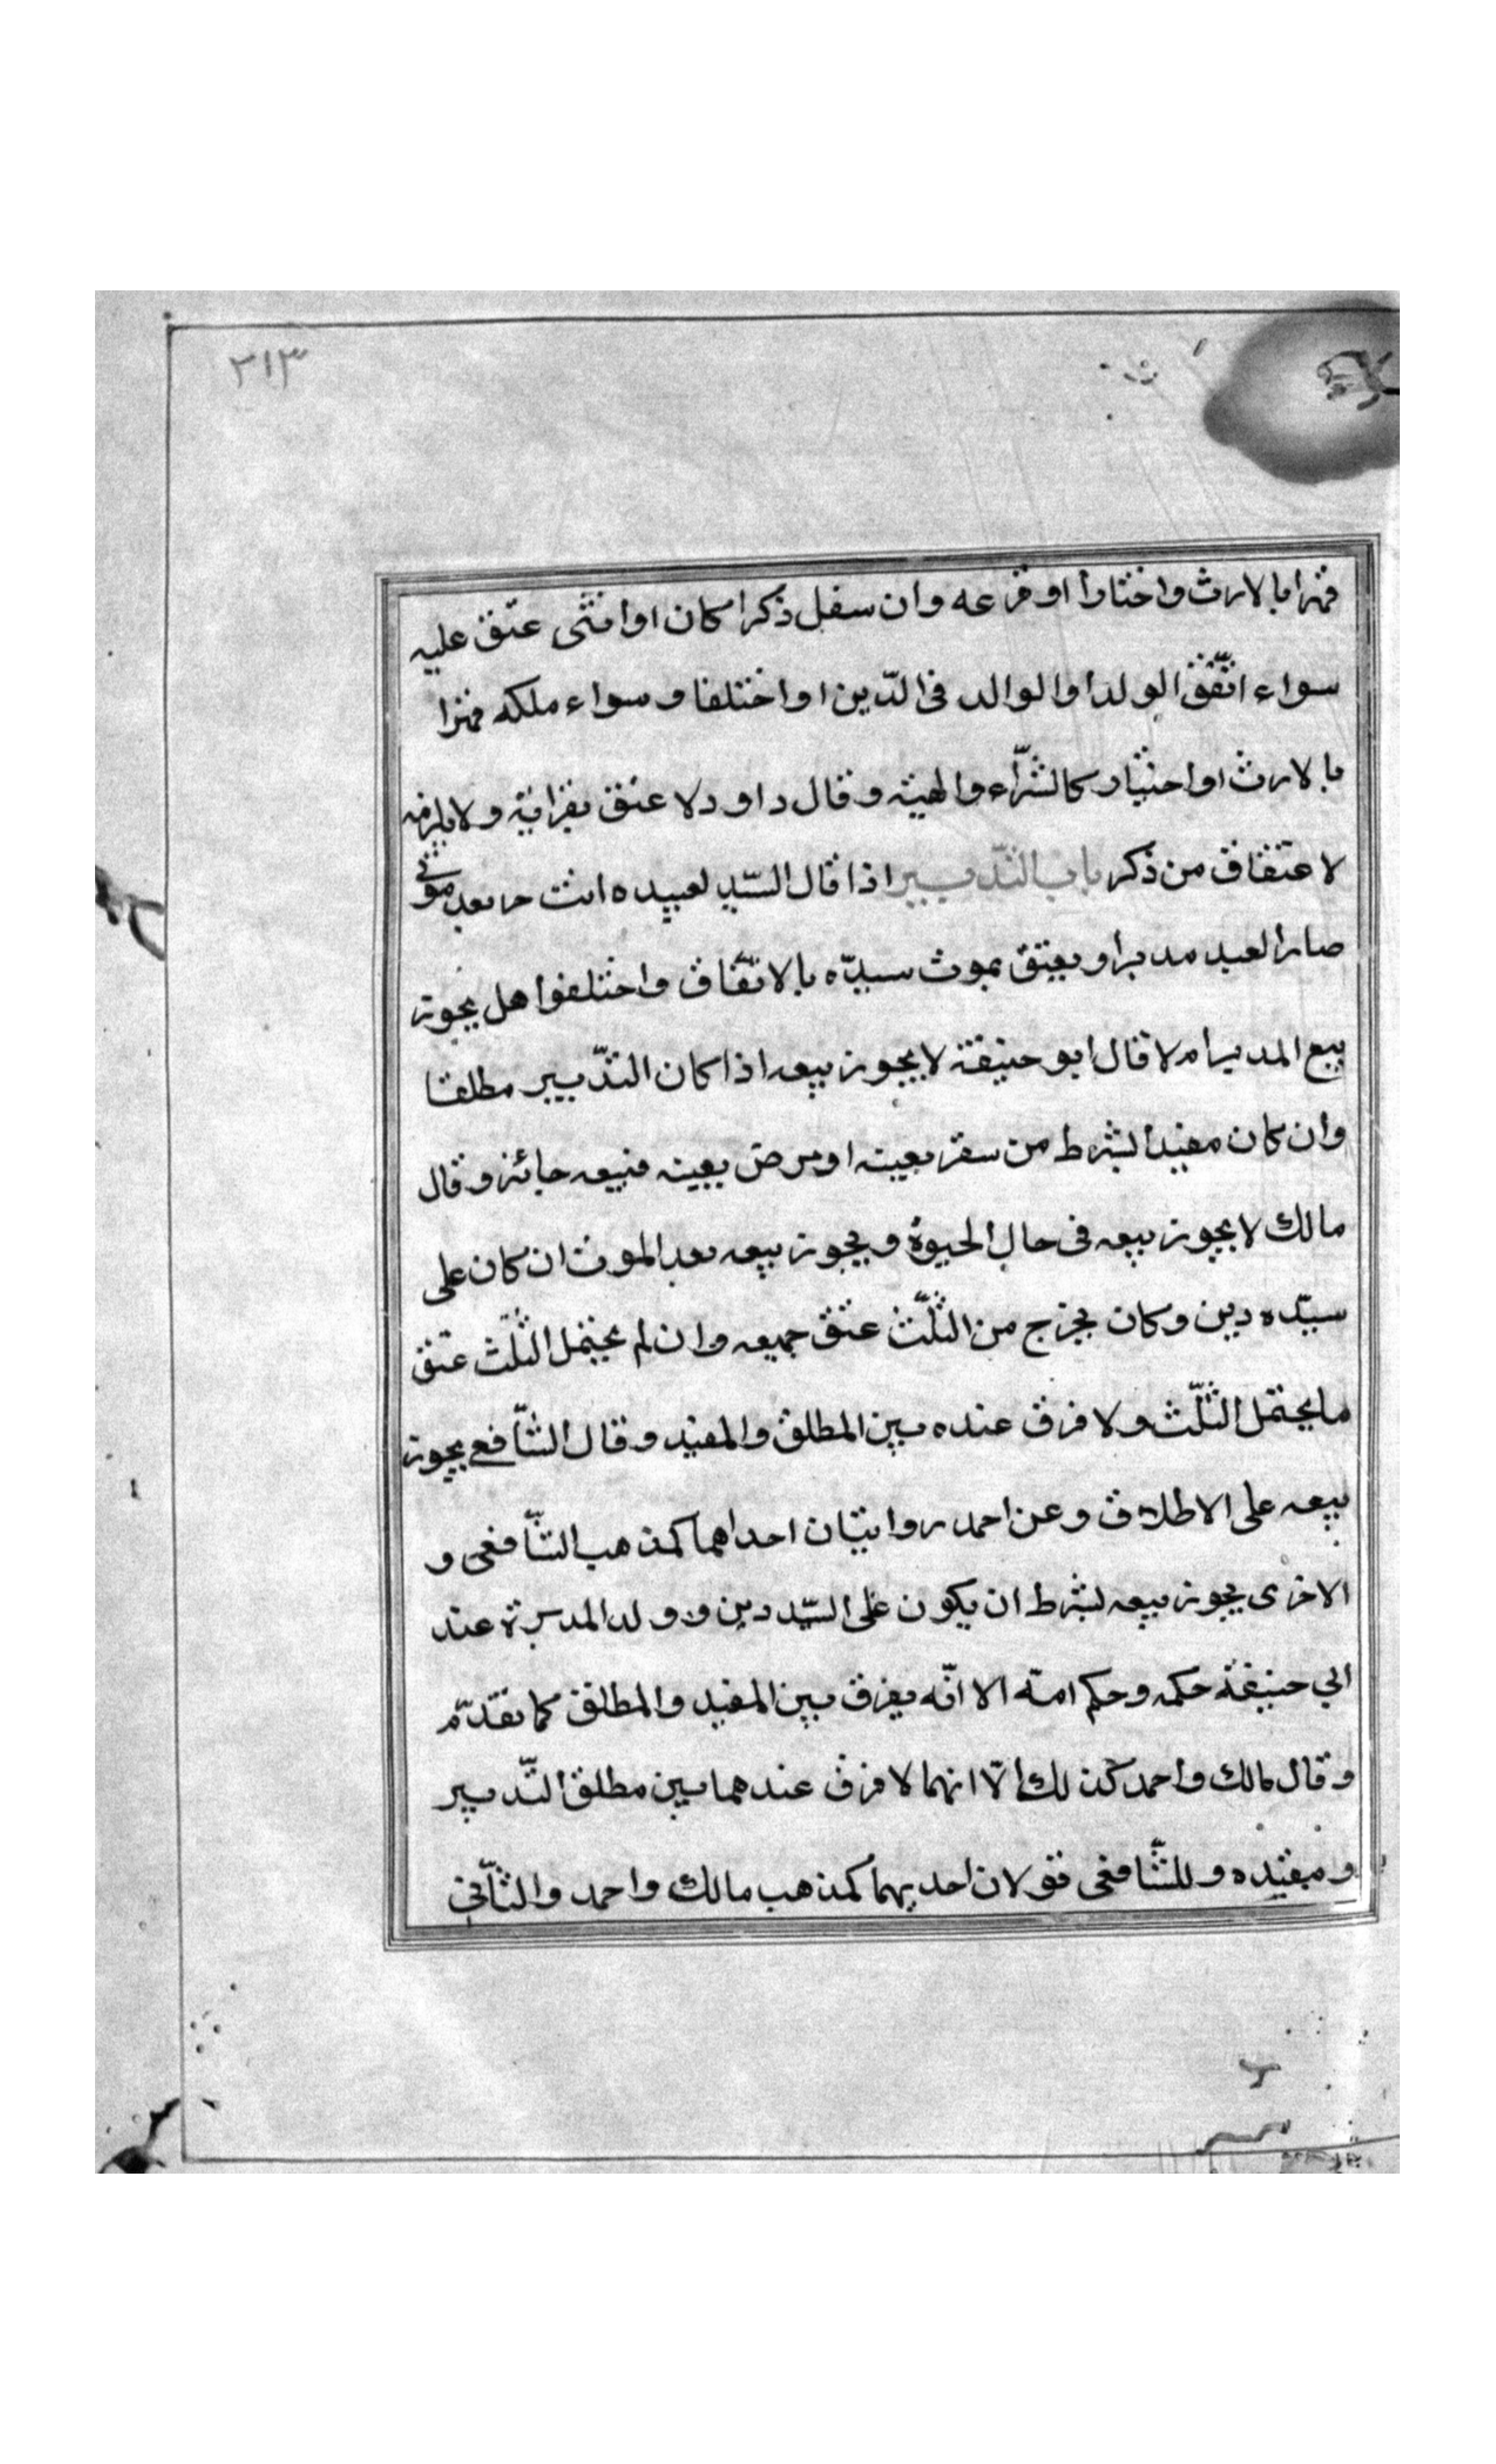 ٢١٣
قهرا بالارث واختارا او فرعه وان سفل ذكرا كان او انثى عتق عليه
سواء اتّفق الولد او الوالد فى الدّين او اختلفا و سواء ملكه قهرا
بالارث او اختيار كالشّراء والهبة و قال داود لا عتق بقرابة ولا يلزمه
لاعتقاق من ذكر باب التّدبير اذا قال السّيد لعبيده انت حر بعد موتى
صار العبد مدبرا و يعتق بموت سيدّه بالاتّفاق واختلفوا هل يجوز
بيع المدبر ام لا قال ابو حنيفة لا يجوز بيعه اذا كان التدّبير مطلقا
وان كان مقيدا بشرط من سفر بعينه او مرض بعينه فبيعه جائز و قال
مالك لا يجوز بيعه فى حال الحيوة و يجوز بيعه بعد الموت ان كان على
سيّده دين وكان يخرج من الثلّث عتق جميعه وان لم يحتمل الثلّث عتق
ما يحتمل الثلّث ولا فرق عنده بين المطلق والمقيد و قال الشّافعى يجوز
بيعه على الاطلاق وعن احمد روايتان احداهما كمذهب الشّافعى و
الاخرى يجوز بيعه بشرط ان يكون على السّيد دين و ولد المدبرة عند
ابي حنيفة حكمه وحكم امه الا انّه يفرق بين المقيد والمطلق كما تقدّم
و قال مالك واحمد كذلك الّا انهما لا فرق عندهما بين مطلق التّدبير
و مقيده و للشّافعى قولان احديهما كمذهب مالك واحمد والثّانى